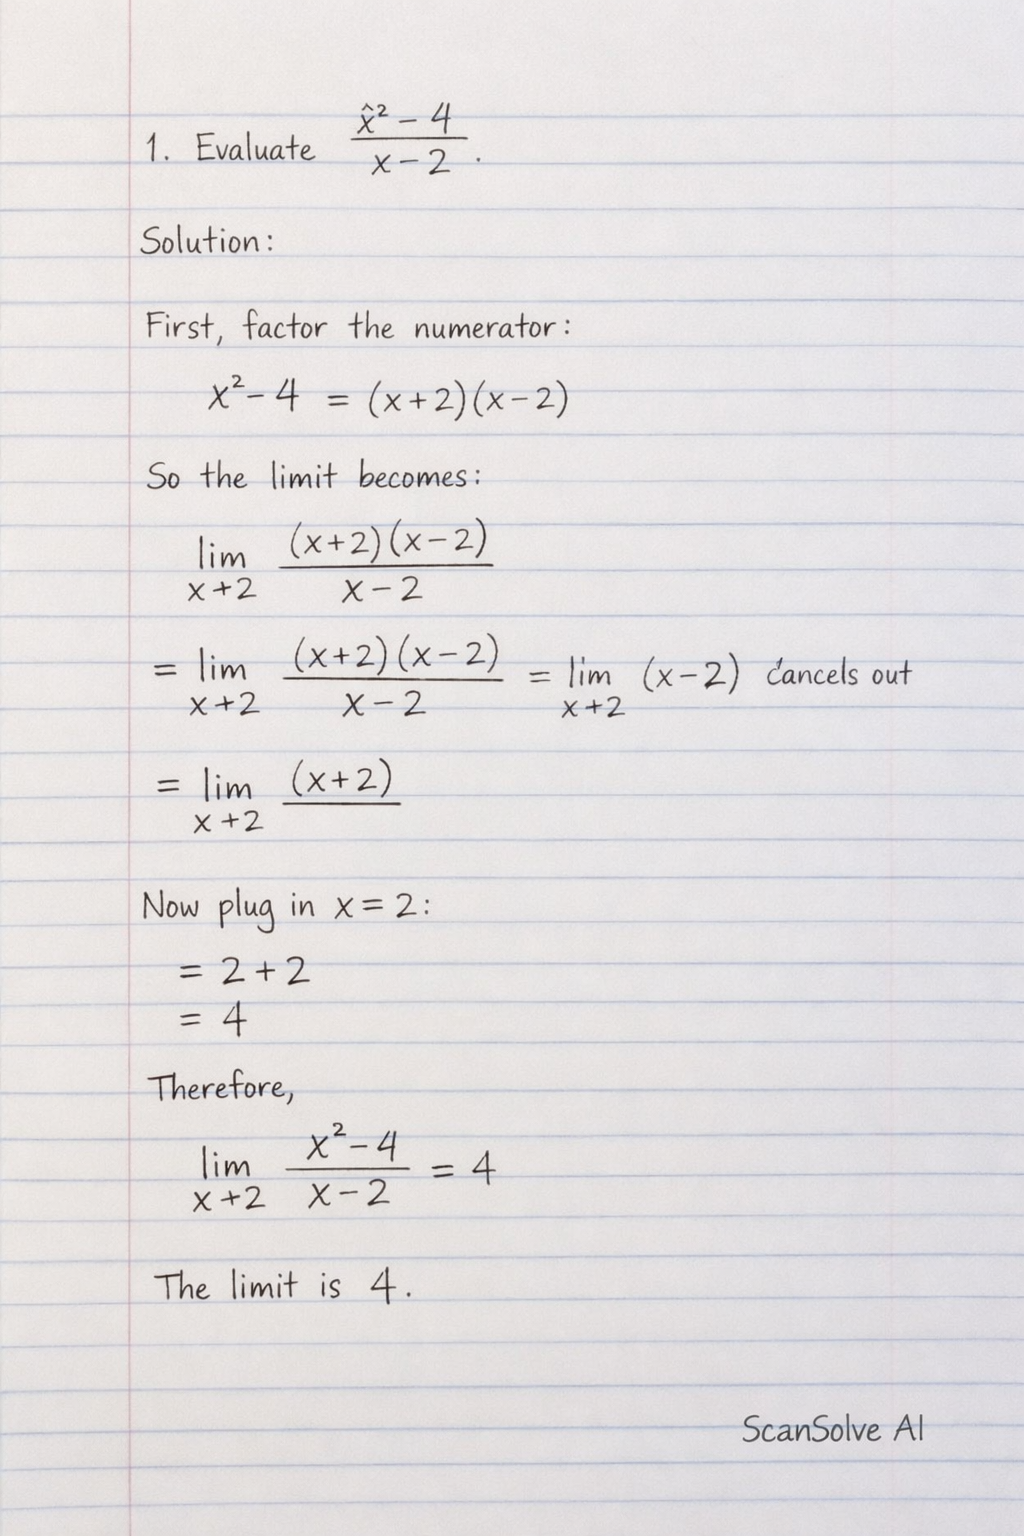 1. Evaluate x̂² − 4 / x − 2 .
Solution:
First, factor the numerator:
x² − 4 = (x+2)(x−2)
So the limit becomes:
lim x+2 (x+2)(x−2) / x−2
= lim x+2 (x+2)(x−2) / x−2 = lim x+2 (x−2) cancels out
= lim x+2 (x+2)
Now plug in x = 2:
= 2+2
= 4
Therefore,
lim x+2 x²−4 / x−2 = 4
The limit is 4.
ScanSolve AI